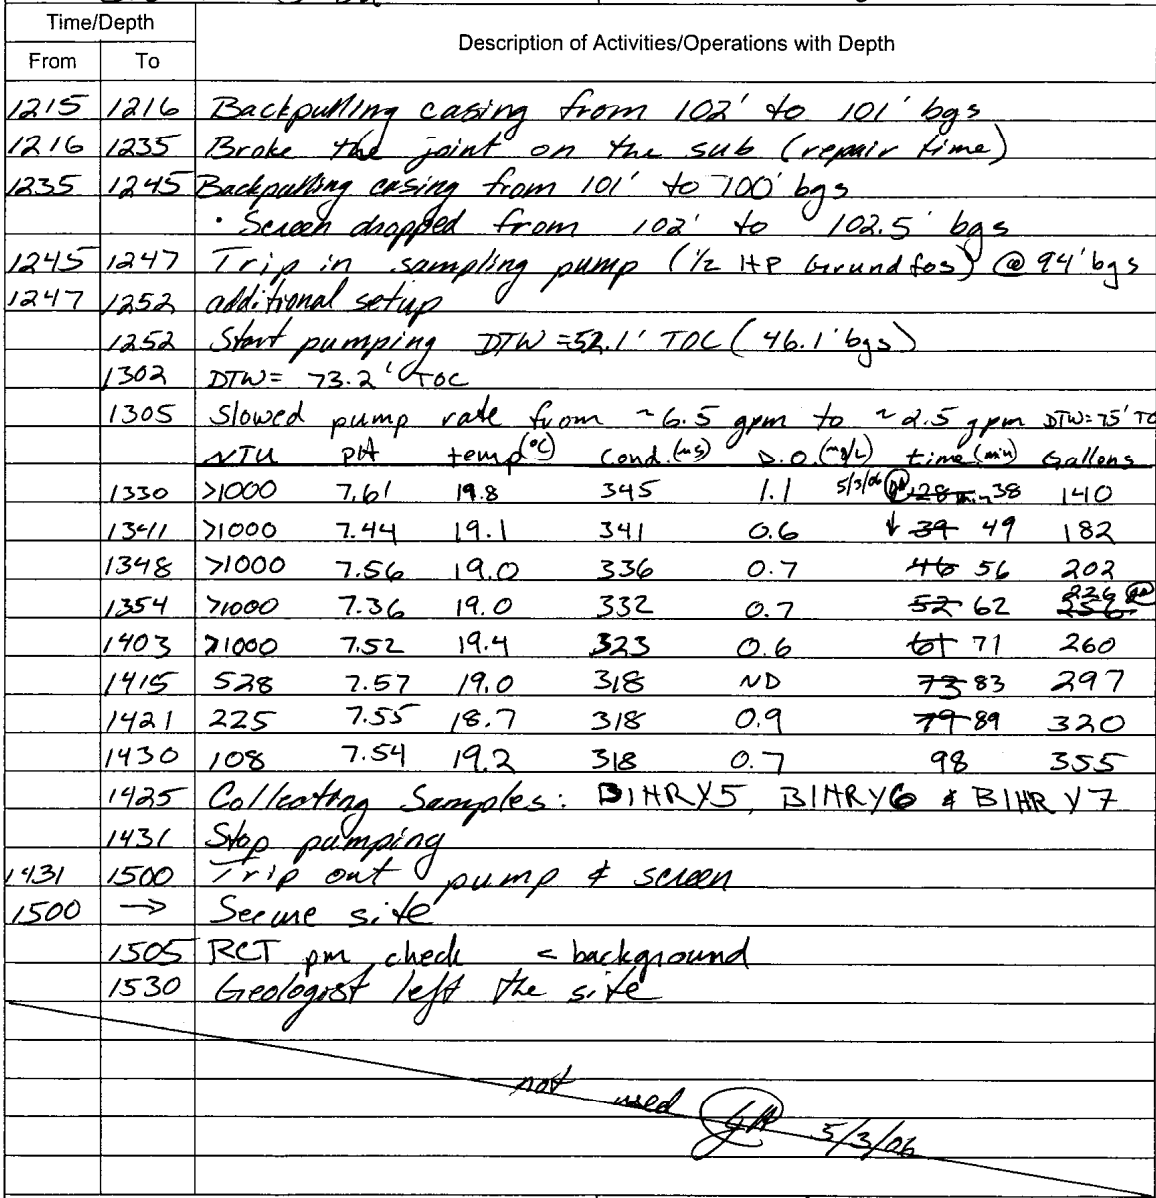 Time/Depth Description of Activities/Operations with Depth
From To
1215 1216 Backpulling casing from 102' to 101' bgs
1216 1235 Broke the joint on the sub (repair time)
1235 1245 Backpulling casing from 101' to 700' bgs
· Screen dropped from 102' to 102.5' bgs
1245 1247 Trip in sampling pump (1/2 HP Grundfos) @ 94' bgs
1247 1252 additional setup
1252 Start pumping DTW = 52.1' TOC (46.1' bgs)
1302 DTW = 73.2' TOC
1305 Slowed pump rate from ~6.5 gpm to ~2.5 gpm DTW=75' TO
NTU pH temp (°C) Cond. (mS) D.O. (mg/L) time (min) Gallons
1330 >1000 7.61 19.8 345 1.1 5/3/06 28 min 38 140
1341 >1000 7.44 19.1 341 0.6 ↓ 39 49 182
1348 >1000 7.56 19.0 336 0.7 46 56 202
1354 >1000 7.36 19.0 332 0.7 52 62 226 256
1403 >1000 7.52 19.4 323 0.6 61 71 260
1415 528 7.57 19.0 318 ND 73 83 297
1421 225 7.55 18.7 318 0.9 79 89 320
1430 108 7.54 19.2 318 0.7 98 355
1425 Collecting Samples: B1HRY5, B1HRY6 & B1HRY7
1431 Stop pumping
1431 1500 Trip out pump & screen
1500 → Secure site
1505 RCT pm check = background
1530 Geologist left the site
not used 5/3/06